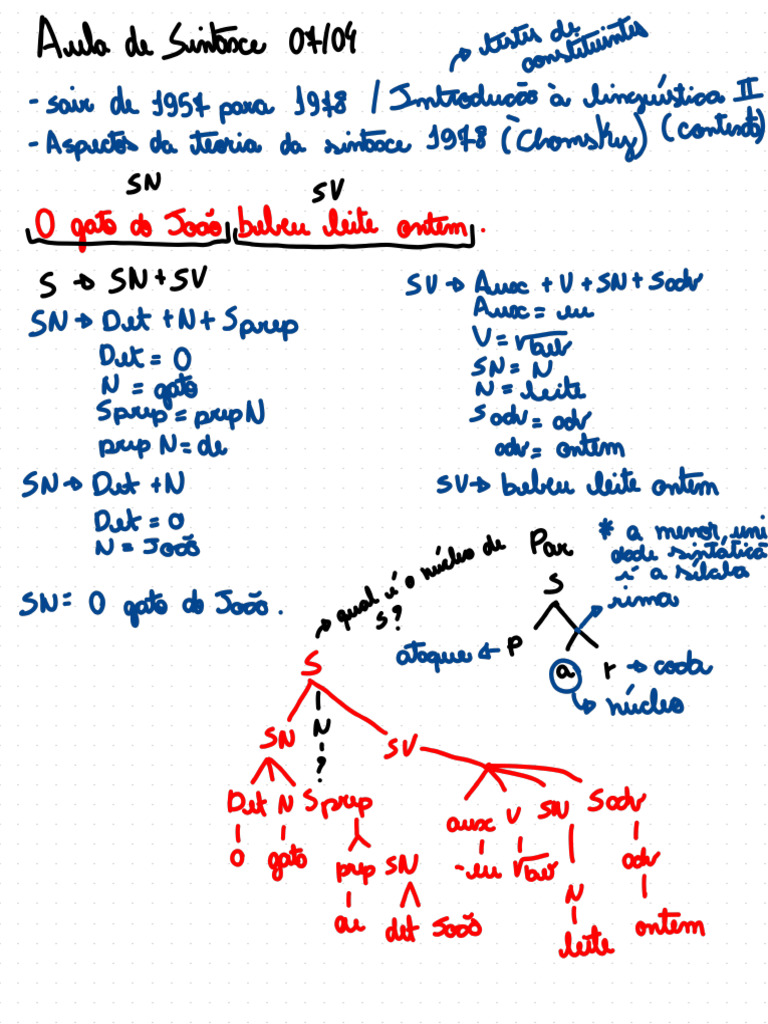 Aula de Sintaxe 07/04
→ testes de constituintes
- sair de 1957 para 1978 / Introdução à linguística II
- Aspectos da teoria da sintaxe 1978 (Chomsky) (contexto)
SN SV
O gato do João bebeu leite ontem.
S → SN + SV
SN → Det + N + Sprep
Det = O
N = gato
Sprep = prep N
prep N = de
SN → Det + N
Det = o
N = João
SN = O gato do João.
SV → Aux + V + SN + Sadv
Aux = eu
V = √beb
SN = N
N = leite
Sadv = adv
adv = ontem
SV → bebeu leite ontem
* a menor uni
dade sintática
é a sílaba
Par
S
→ rima
ataque ← p
a r → coda
→ núcleo
→ qual é o núcleo de
S?
S
N
?
SN SV
Det N Sprep aux V SN Sadv
O gato prep SN -eu √beb N adv
de det João leite ontem